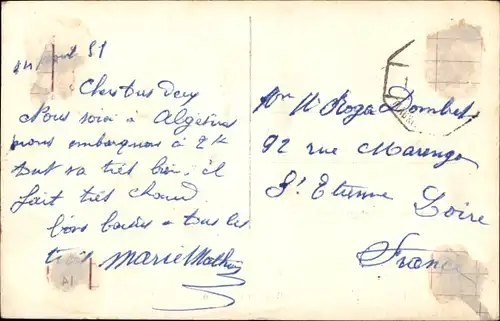 Août 51
Chers tous deux
Nous voici à Algésiras
nous embarquons à 2h
tout va très bien, il
fait très chaud
bons baisers à tous les
trois Marie Mathieu
Mr Roger Dombret
92 rue Marengo
St Etienne Loire
France
A1